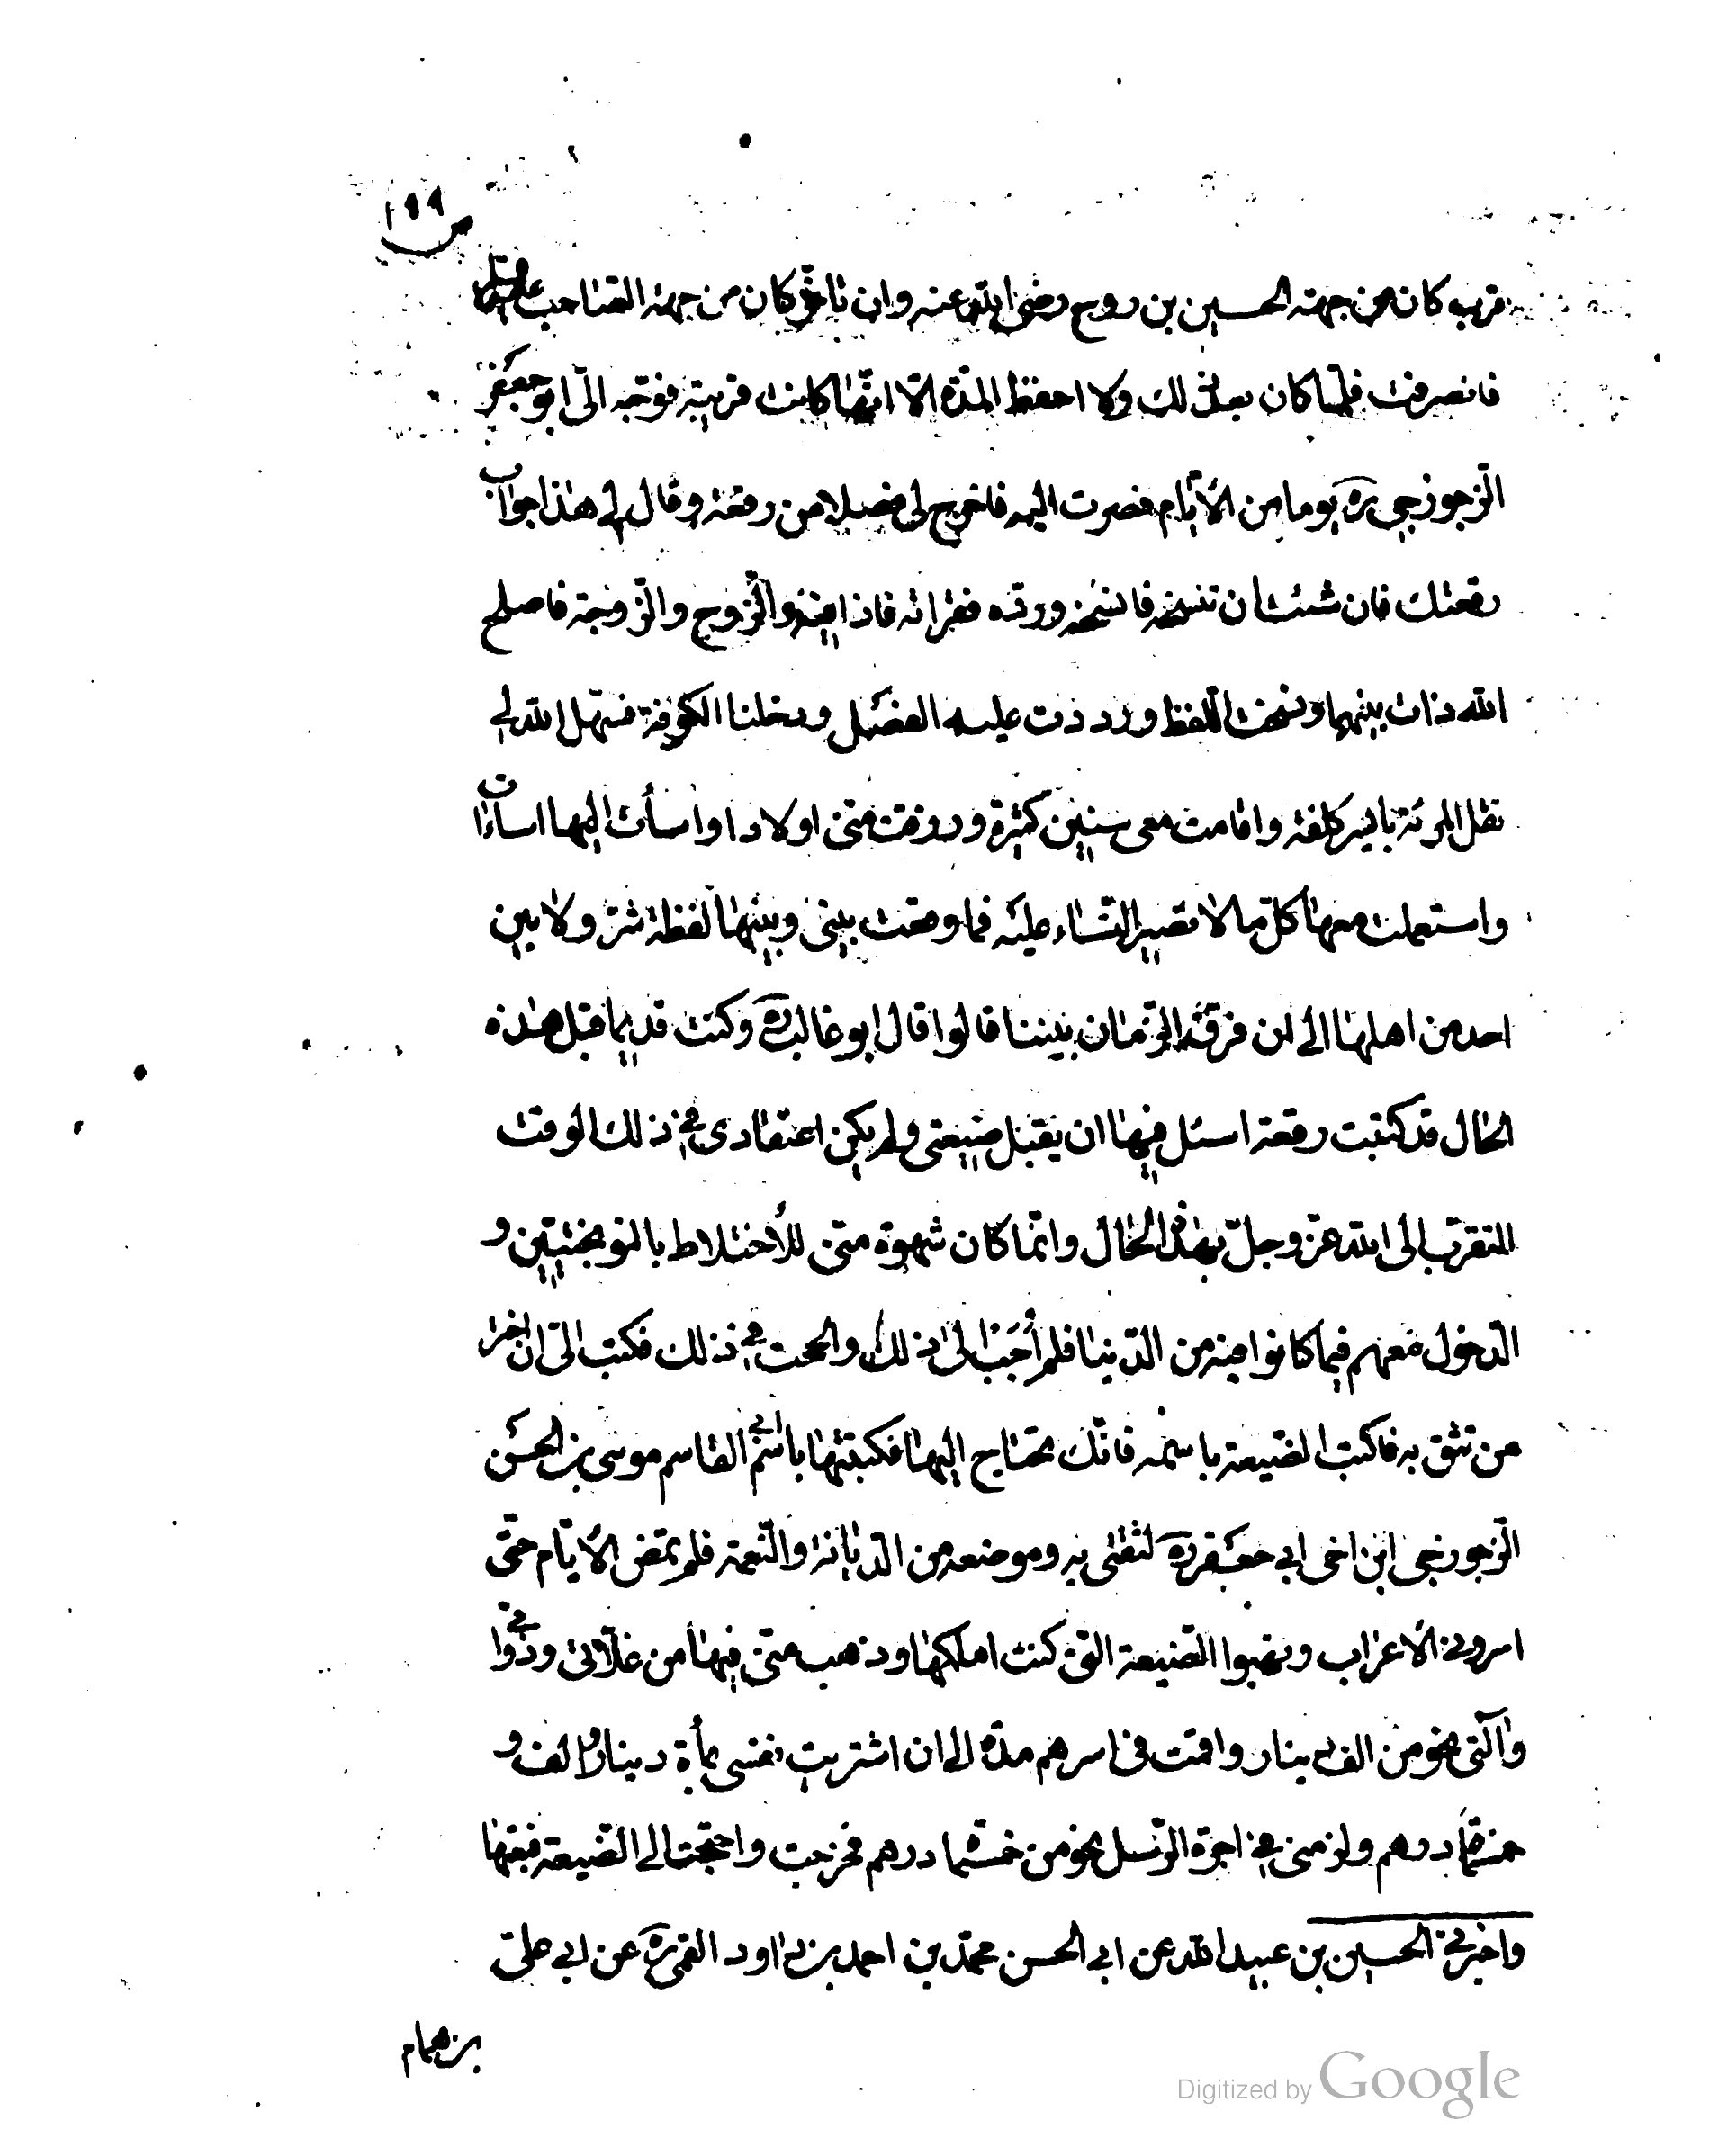 ص ١٩٩
قرب كان من جهة الحسين بن روح رضى الله عنه وان تاخر كان من جهة الصاحب عليه السلام
فانصرفت فلما كان بعد ذلك ولا احفظ المدّة الّا انّها كانت قريبة فوجّه الىّ ابو جعفر
الزّجوزجى ره يوما من الأيّام فصرت اليه فاخرج لى فصلا من رقعة وقال لى هذا جواب
رقعتك فان شئت ان تنسخه فانسخه وردّه فقرأته فاذا فيه والزّوج والزّوجة فاصلح
الله ذات بينهما ونسخت اللّفظ ورددت عليه الفصل ودخلنا الكوفة فسهل الله لى
نقل المرئة بايسر كلفة واقامت معى سنين كثيرة ورزقت منّى اولادا واسأت اليها اساءات
واستعملت معها كلّ ما لا تصبر النّساء عليه فما وقعت بينى وبينها لفظة شرّ ولا بين
احد من اهلها الى ان فرّق الزّمان بيننا قالوا قال ابو غالب ره وكنت قديما قبل هذه
الحال قد كتبت رقعة اسئل فيها ان يقبل ضيعتى ولم يكن اعتقادى فى ذلك الوقت
التقرّب الى الله عزّ وجلّ بهذه الحال وانّما كان شهوة منّى للأختلاط بالنوبختيّين و
الدّخول معهم فيما كانوا فيه من الدّنيا فلم اُجَب الى ذلك والححت فى ذلك فكتب الىّ ان اختر
من تثق به فاكتب الضّيعة باسمه فانّك تحتاج اليها فكتبتها باسم ابى القاسم موسى بن الحسن
الزّجوزجى ابن اخى ابى جعفر ره لثقتى به وموضعه من الدّيانة والنّعمة فلم تمض الأيّام حتّى
اسرونى الأعراب ونهبوا الضّيعة الّتى كنت املكها وذهب منّى فيها من غلّاتى ودوابّى
وآلتى نحو من الف دينار واقمت فى اسرهم مدّة الى ان اشتريت نفسى بمأة دينار والف و
خمسمأة درهم ولزمنى فى اجرة الرّسل نحو من خمسمأة درهم فخرجت واحتجت الى الضّيعة فبعتها
واخبرنى الحسين بن عبيد الله عن ابى الحسن محمّد بن احمد بن داود القمى ره عن ابى علىّ
بن همام
Digitized by Google